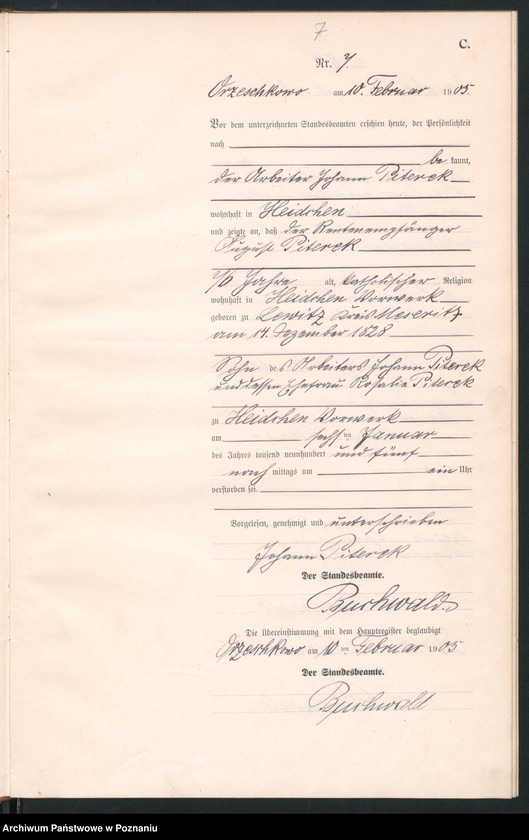 7
C.
Nr. 7
Orzeschkowo am 10. Februar 1905.
Vor dem unterzeichneten Standesbeamten erschien heute, der Persönlichkeit
nach
be kannt,
der Arbeiter Johann Piterek
wohnhaft in Heidchen
und zeigte an, daß der Rentenempfänger
August Piterek
76 Jahre alt, katholischer Religion
wohnhaft in Heidchen Vorwerk
geboren zu Lewitz Kreis Meseritz
am 14. Dezember 1828
Sohn des Arbeiters Johann Piterek
und dessen Ehefrau Rosalie Piterek
zu Heidchen Vorwerk
am sechsten Januar
des Jahres tausend neunhundert und fünf
nach mittags um ein Uhr
verstorben sei.
Vorgelesen, genehmigt und unterschrieben
Johann Piterek
Der Standesbeamte.
Buchwald.
Die Übereinstimmung mit dem Hauptregister beglaubigt
Orzeschkowo am 10 ten Februar 1905
Der Standesbeamte.
Buchwald
Archiwum Państwowe w Poznaniu